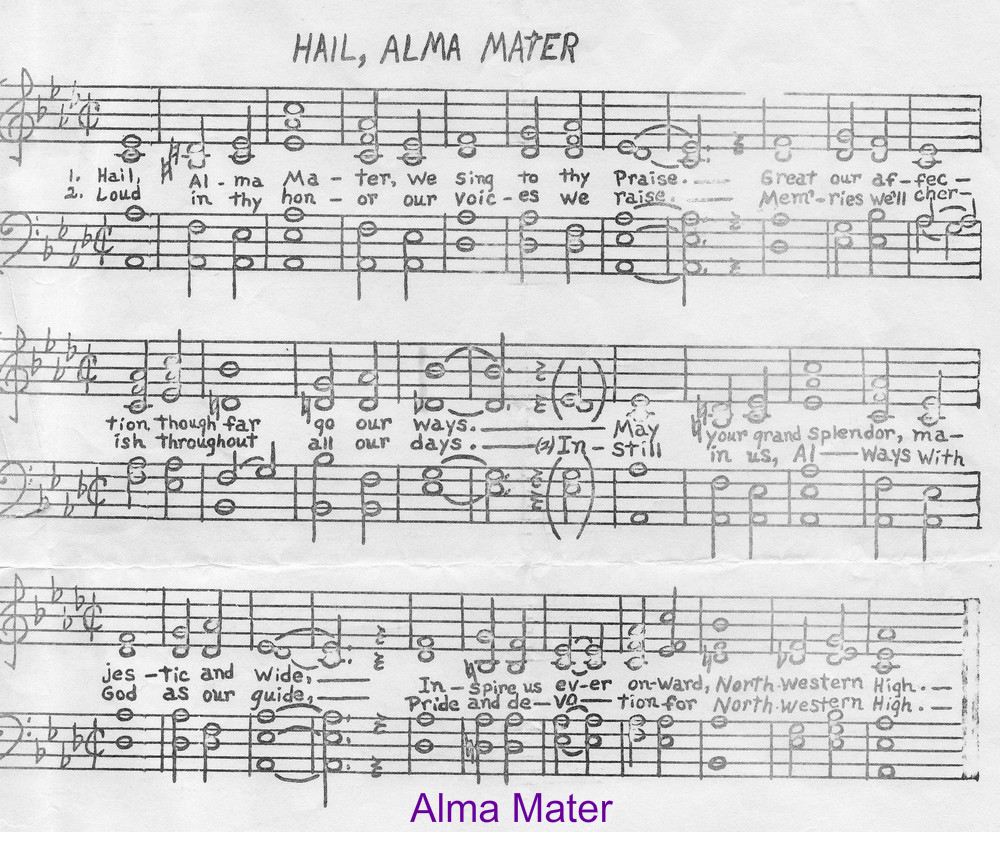 HAIL, ALMA MATER
1. Hail, Al-ma Ma-ter, we sing to thy Praise. Great our af-fec-
2. Loud in thy hon-or our voic-es we raise. Mem'-ries we'll cher-
tion though far go our ways. May your grand splendor, ma-
ish throughout all our days. (2) In-still in us, Al-ways with
jes-tic and wide, In-spire us ev-er on-ward, North-western High.
God as our guide, Pride and de-vo-tion for North-western High.
Alma Mater